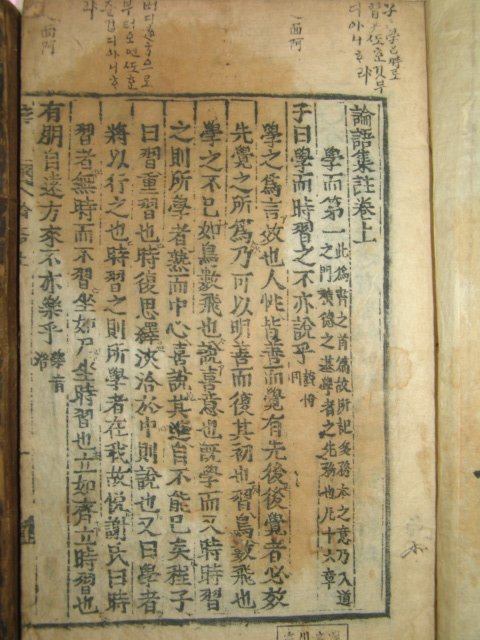 디아니ᄒᆞ랴
論語集註卷上
學而第一 此爲書之首篇故所記多務本之意乃入道
之門積德之基學者之先務也凡十六章
子曰學而時習之不亦說乎 說悅同
學之爲言效也人性皆善而覺有先後後覺者必效
先覺之所爲乃可以明善而復其初也習鳥數飛也
學之不已如鳥數飛也說喜意也旣學而又時時習
之則所學者熟而中心喜說其進自不能已矣程子
曰習重習也時復思繹浹洽於中則說也又曰學者
將以行之也時習之則所學者在我故悅謝氏曰時
習者無時而不習坐如尸坐時習也立如齊立時習也
有朋自遠方來不亦樂乎 樂音洛